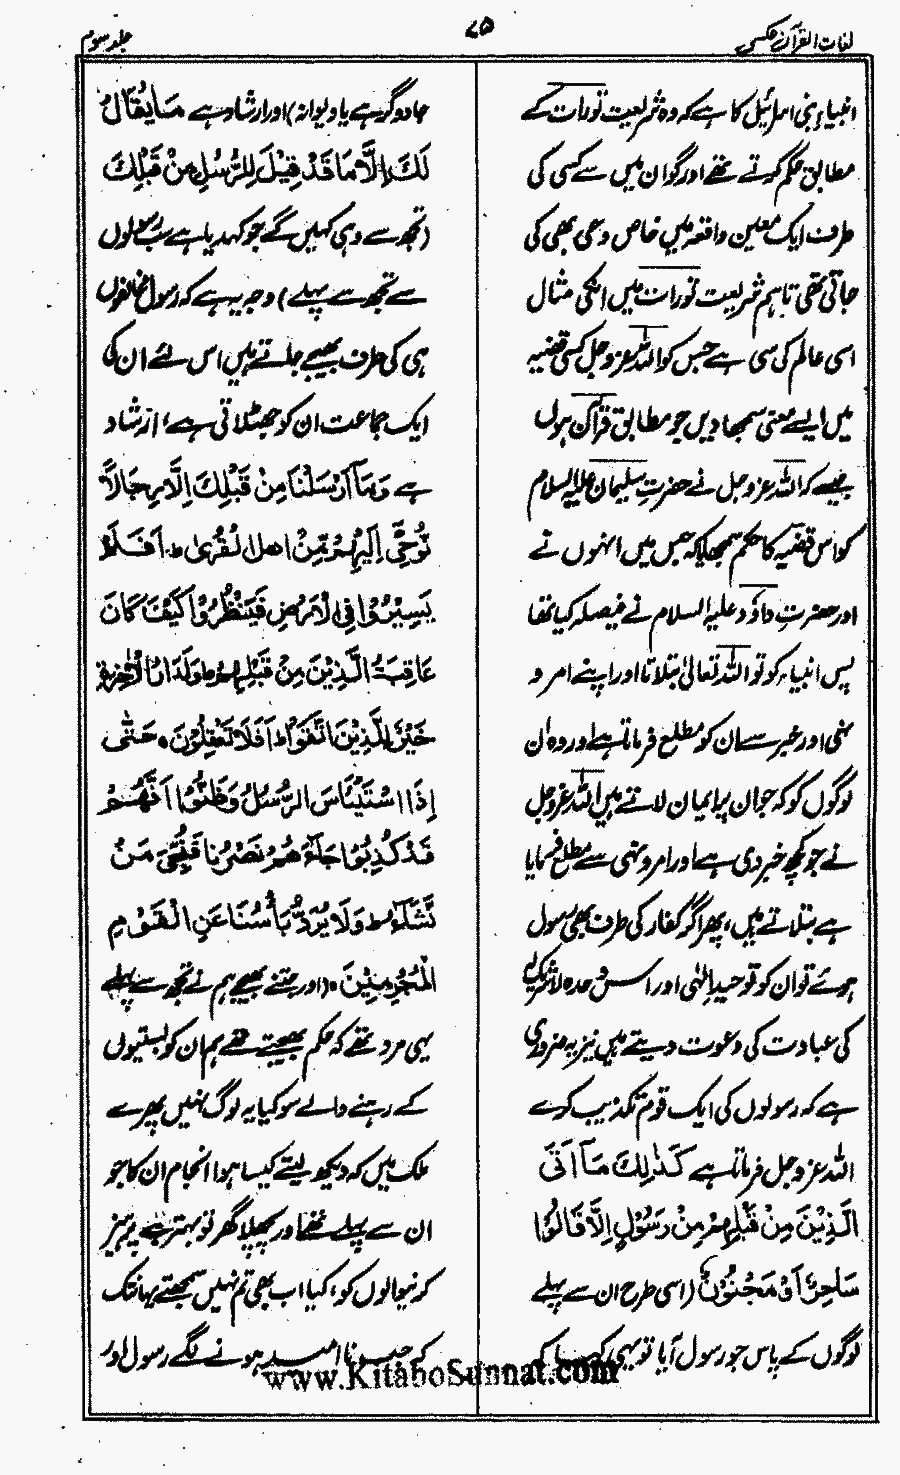 لغات القرآن عکسی
۷۵
جلد سوم
انبیاء بنی اسرائیل کا ہے کہ وہ شریعت تورات کے
مطابق حکم کرتے تھے اور گو ان میں سے کسی کی
طرف ایک معین واقعہ میں خاص وحی بھی کی
جاتی تھی تاہم شریعت تورات میں انکی مثال
اسی عالم کی سی ہے جس کو اللہ عز وجل کسی قضیہ
میں ایسے معنی سمجھا دیں جو مطابق قرآن ہوں
جیسے کہ اللہ عز وجل نے حضرتِ سلیمان علیہ السلام
کو اس قضیہ کا حکم سمجھایا کہ جس میں انہوں نے
اور حضرتِ داؤد علیہ السلام نے فیصلہ کیا تھا
پس انبیاء کو تو اللہ تعالیٰ بتلاتا اور اپنے امر و
نہی اور خبر سے ان کو مطلع فرماتا ہے اور وہ ان
لوگوں کو کہ جو ان پر ایمان لاتے ہیں اللہ عز وجل
نے جو کچھ خبر دی ہے اور امر و نہی سے مطلع فرمایا
ہے بتلاتے ہیں، پھر اگر کفار کی طرف بھی رسول
ہوئے تو ان کو توحیدِ الٰہی اور اس وحدہ لاشریک لہ
کی عبادت کی دعوت دیتے ہیں نیز یہ ضروری
ہے کہ رسولوں کی ایک قوم تکذیب کرے
اللہ عز وجل فرماتا ہے كَذٰلِكَ مَآ اَتَى
الَّذِيْنَ مِنْ قَبْلِهِمْ مِنْ رَسُوْلٍ اِلَّا قَالُوْا
سَاحِرٌ اَوْ مَجْنُوْنٌ (اسی طرح ان سے پہلے
لوگوں کے پاس جو رسول آیا تو یہی کہا کہ
جادوگر ہے یا دیوانہ) اور ارشاد ہے مَا يُقَالُ
لَكَ اِلَّا مَا قَدْ قِيْلَ لِلرُّسُلِ مِنْ قَبْلِكَ
(تجھ سے وہی کہیں گے جو کہدیا ہے سب رسولوں
سے تجھ سے پہلے) وجہ یہ ہے کہ رسول مخالفوں
ہی کی طرف بھیجے جاتے ہیں اس لئے ان کی
ایک جماعت ان کو جھٹلاتی ہے، ارشاد
ہے وَمَآ اَرْسَلْنَا مِنْ قَبْلِكَ اِلَّا رِجَالًا
نُّوْحِيْٓ اِلَيْهِمْ مِّنْ اَهْلِ الْقُرٰى ط اَفَلَمْ
يَسِيْرُوْا فِي الْاَرْضِ فَيَنْظُرُوْا كَيْفَ كَانَ
عَاقِبَةُ الَّذِيْنَ مِنْ قَبْلِهِمْ ط وَلَدَارُ الْاٰخِرَةِ
خَيْرٌ لِّلَّذِيْنَ اتَّقَوْا ط اَفَلَا تَعْقِلُوْنَ ہ حَتّٰى
اِذَا اسْتَيْـَٔسَ الرُّسُلُ وَظَنُّوْٓا اَنَّهُمْ
قَدْ كُذِبُوْا جَآءَهُمْ نَصْرُنَا فَنُجِّيَ مَنْ
نَّشَآءُ ط وَلَا يُرَدُّ بَأْسُنَا عَنِ الْقَوْمِ
الْمُجْرِمِيْنَ ہ (اور جتنے بھیجے ہم نے تجھ سے پہلے
یہی مرد تھے کہ حکم بھیجتے تھے ہم ان کو بستیوں
کے رہنے والے سو کیا یہ لوگ نہیں پھرے
ملک میں کہ دیکھ لیتے کیسا ہوا انجام ان کا جو
ان سے پہلے تھے اور پچھلا گھر تو بہتر ہے پرہیز
کرنیوالوں کو، کیا اب بھی تم نہیں سمجھتے یہانتک
کہ جب نا امید ہونے لگے رسول اور
www.KitaboSunnat.com